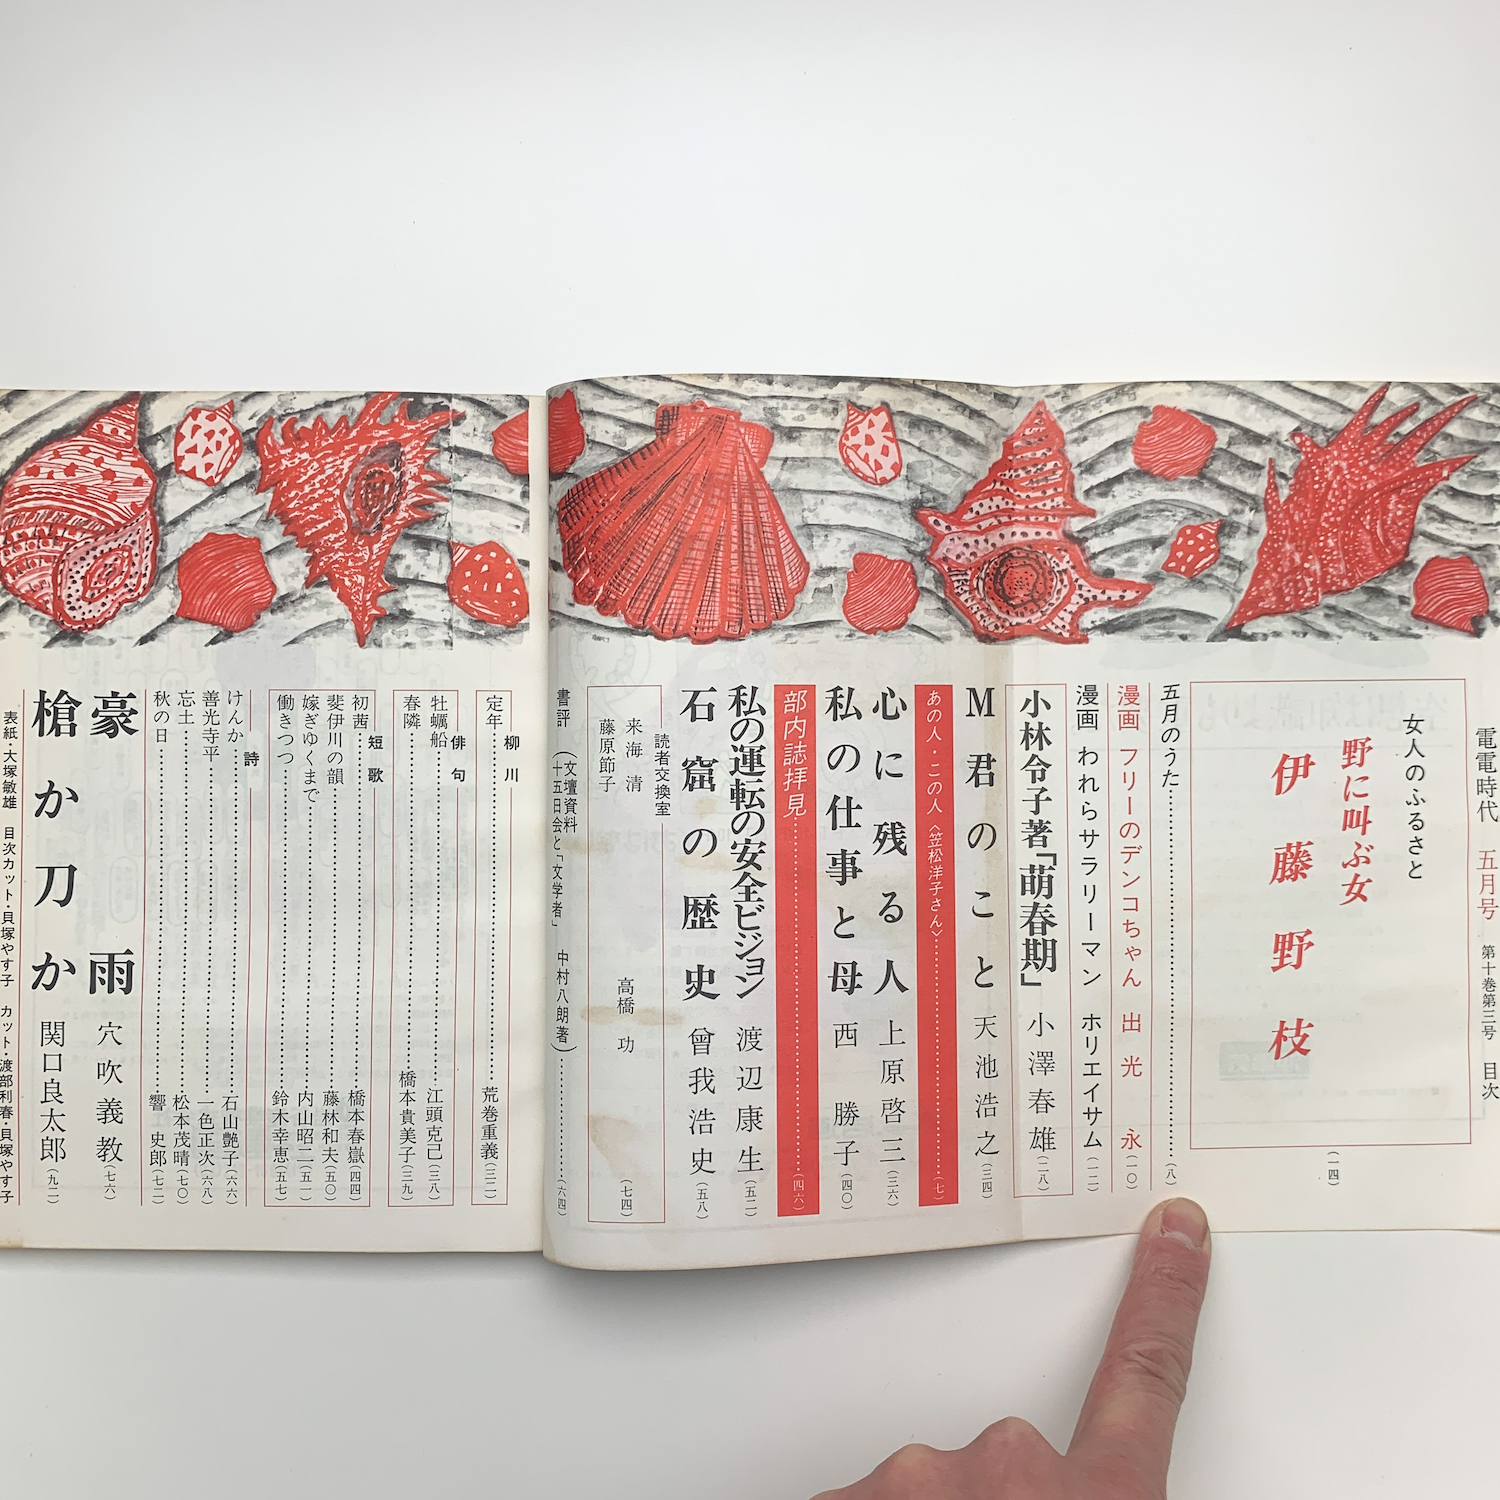 電電時代 五月号 第十巻第三号 目次
女人のふるさと
野に叫ぶ女
伊藤野枝
(一四)
五月のうた……(八)
漫画 フリーのデンコちゃん 出光 永(一〇)
漫画 われらサラリーマン ホリエイサム(一二)
小林令子著「萌春期」 小澤春雄(二八)
M君のこと 天池浩之(三四)
あの人・この人〈笠松洋子さん〉……(七)
心に残る人 上原啓三(三六)
私の仕事と母 西 勝子(四〇)
部内誌拝見……(四六)
私の運転の安全ビジョン 渡辺康生(五二)
石窟の歴史 曾我浩史(五八)
読者交換室
来海 清
藤原節子
高橋 功
(七四)
書評 (文壇資料 十五日会と「文学者」 中村八朗著)……(六四)
柳川
定年……荒巻重義(三二)
俳句
牡蠣船……江頭克己(三八)
春隣……橋本貴美子(三九)
短歌
初茜……橋本春嶽(四四)
斐伊川の韻……藤林和夫(五〇)
嫁ぎゆくまで……内山昭二(五一)
働きつつ……鈴木幸恵(五七)
詩
けんか……石山艶子(六六)
善光寺平……一色正次(六八)
忘土……松本茂晴(七〇)
秋の日……響 史郎(七二)
豪雨 穴吹義教(七六)
槍か刀か 関口良太郎(九二)
表紙・大塚敏雄 目次カット・貝塚やす子 カット・渡部利春・貝塚やす子